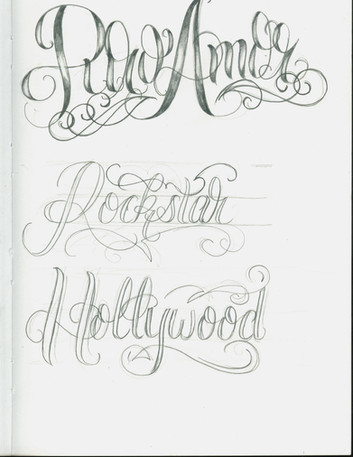 Puro Amor
Rockstar
Hollywood